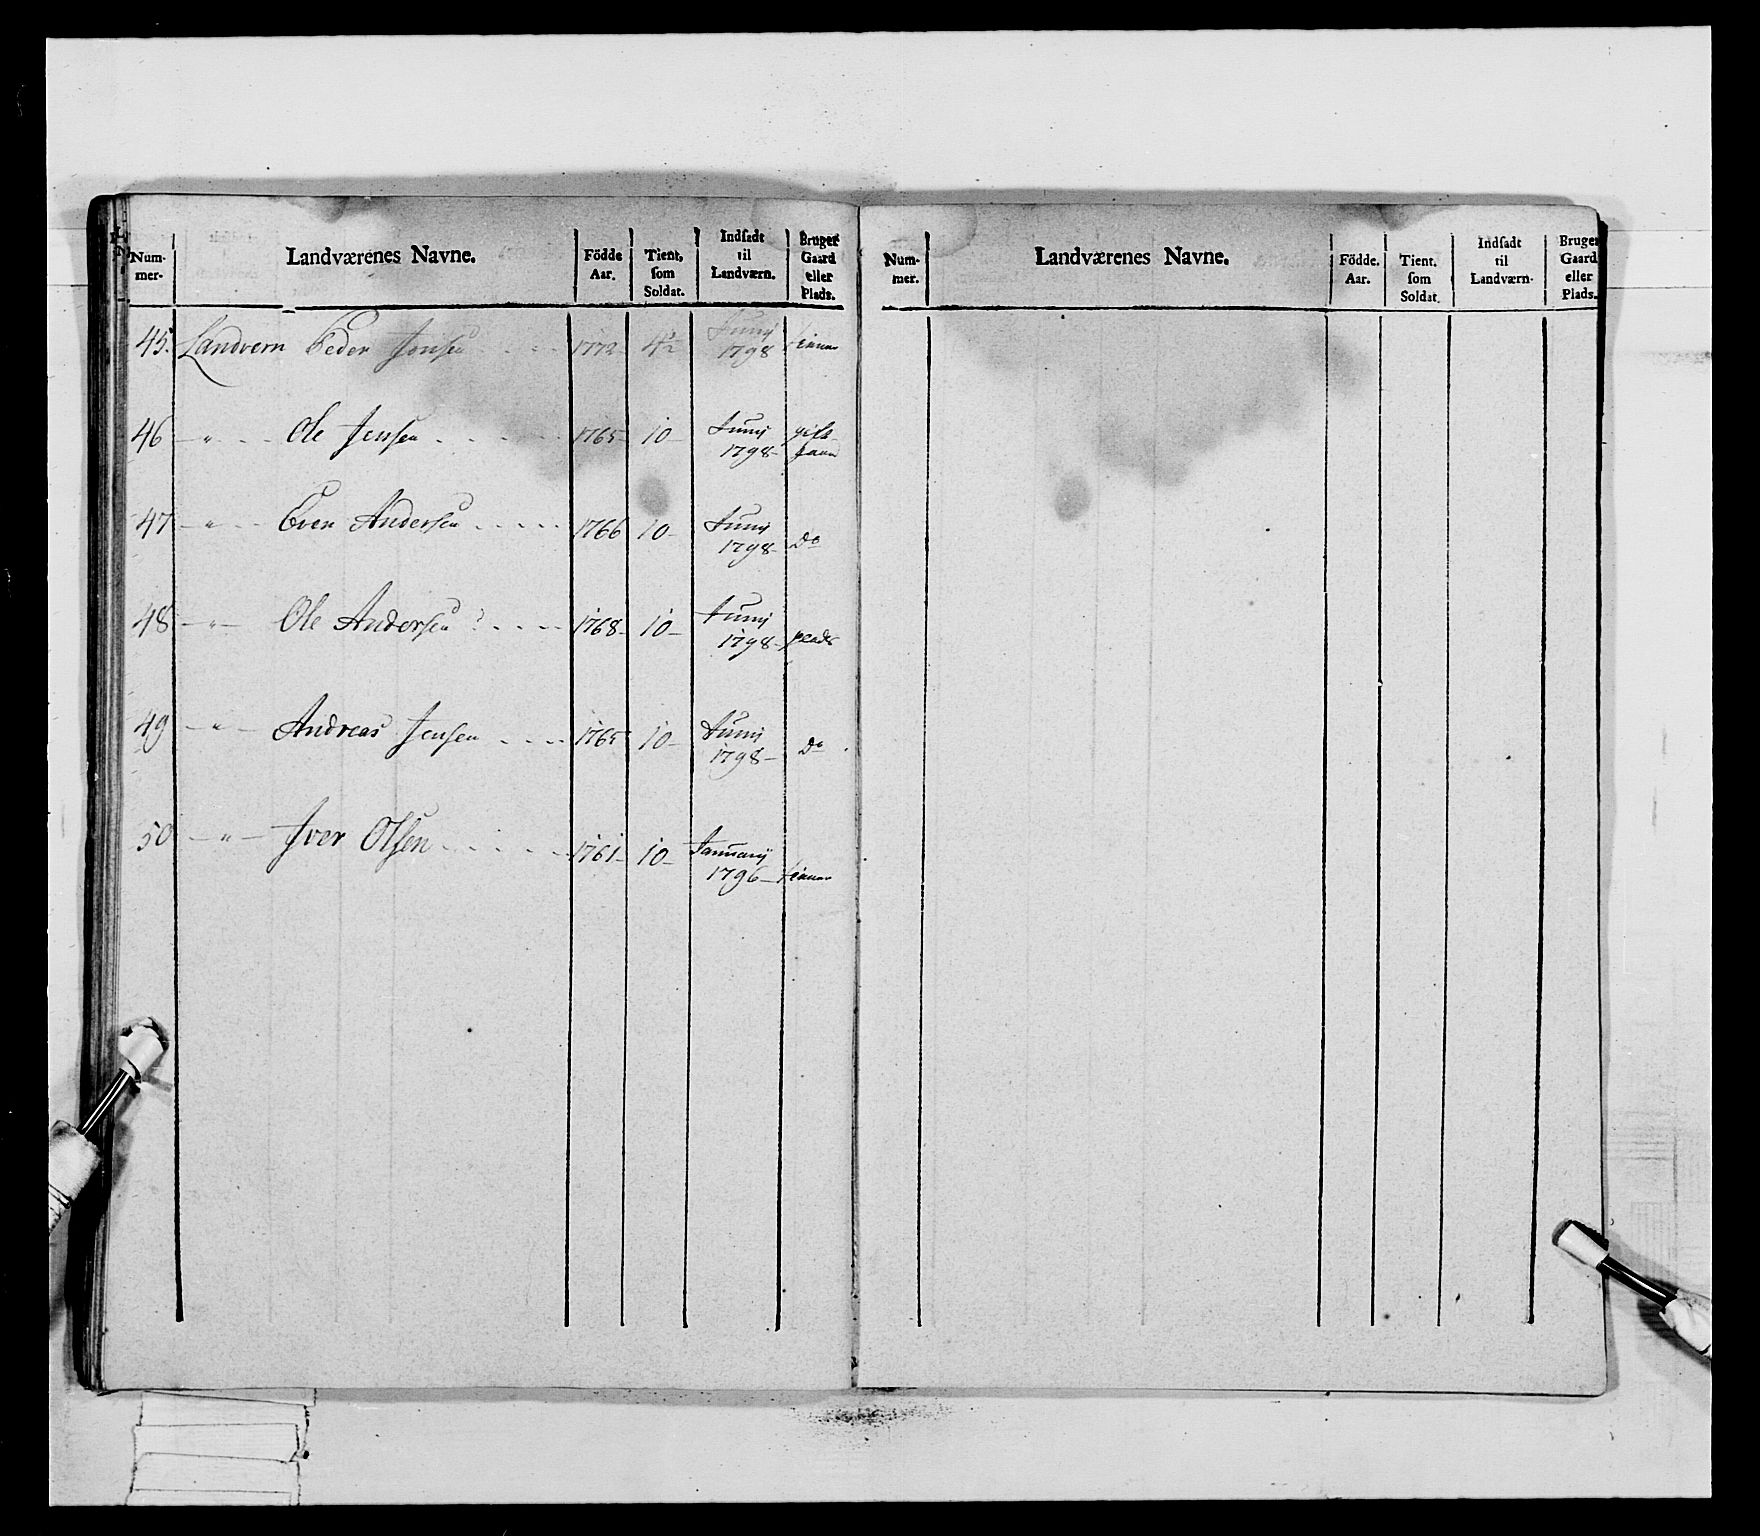 Num-
mer.
Landværenes Navne.
Födde
Aar.
Tient.
som
Soldat.
Indsadt
til
Landværn.
Bruger
Gaard
eller
Plads.
45. Landvern Peder Jonsen 1772 4½ Junij 1798 tiener
46 — " — Ole Jensen 1765 10 — Junij 1798 — gift
47 — " — Even Andersen 1766 10 — Junij 1798 — Do
48 — " — Ole Andersen 1768 — 10 — Junij 1798 — plads
49 — " — Andreas Jensen 1765 10 — Junij 1798 — Do
50 — " — Iver Olsen 1761 — 10 — Januarij 1796 — tiener
Num-
mer.
Landværenes Navne.
Födde.
Aar.
Tient.
som
Soldat.
Indsadt
til
Landværn.
Bruger
Gaard
eller
Plads.